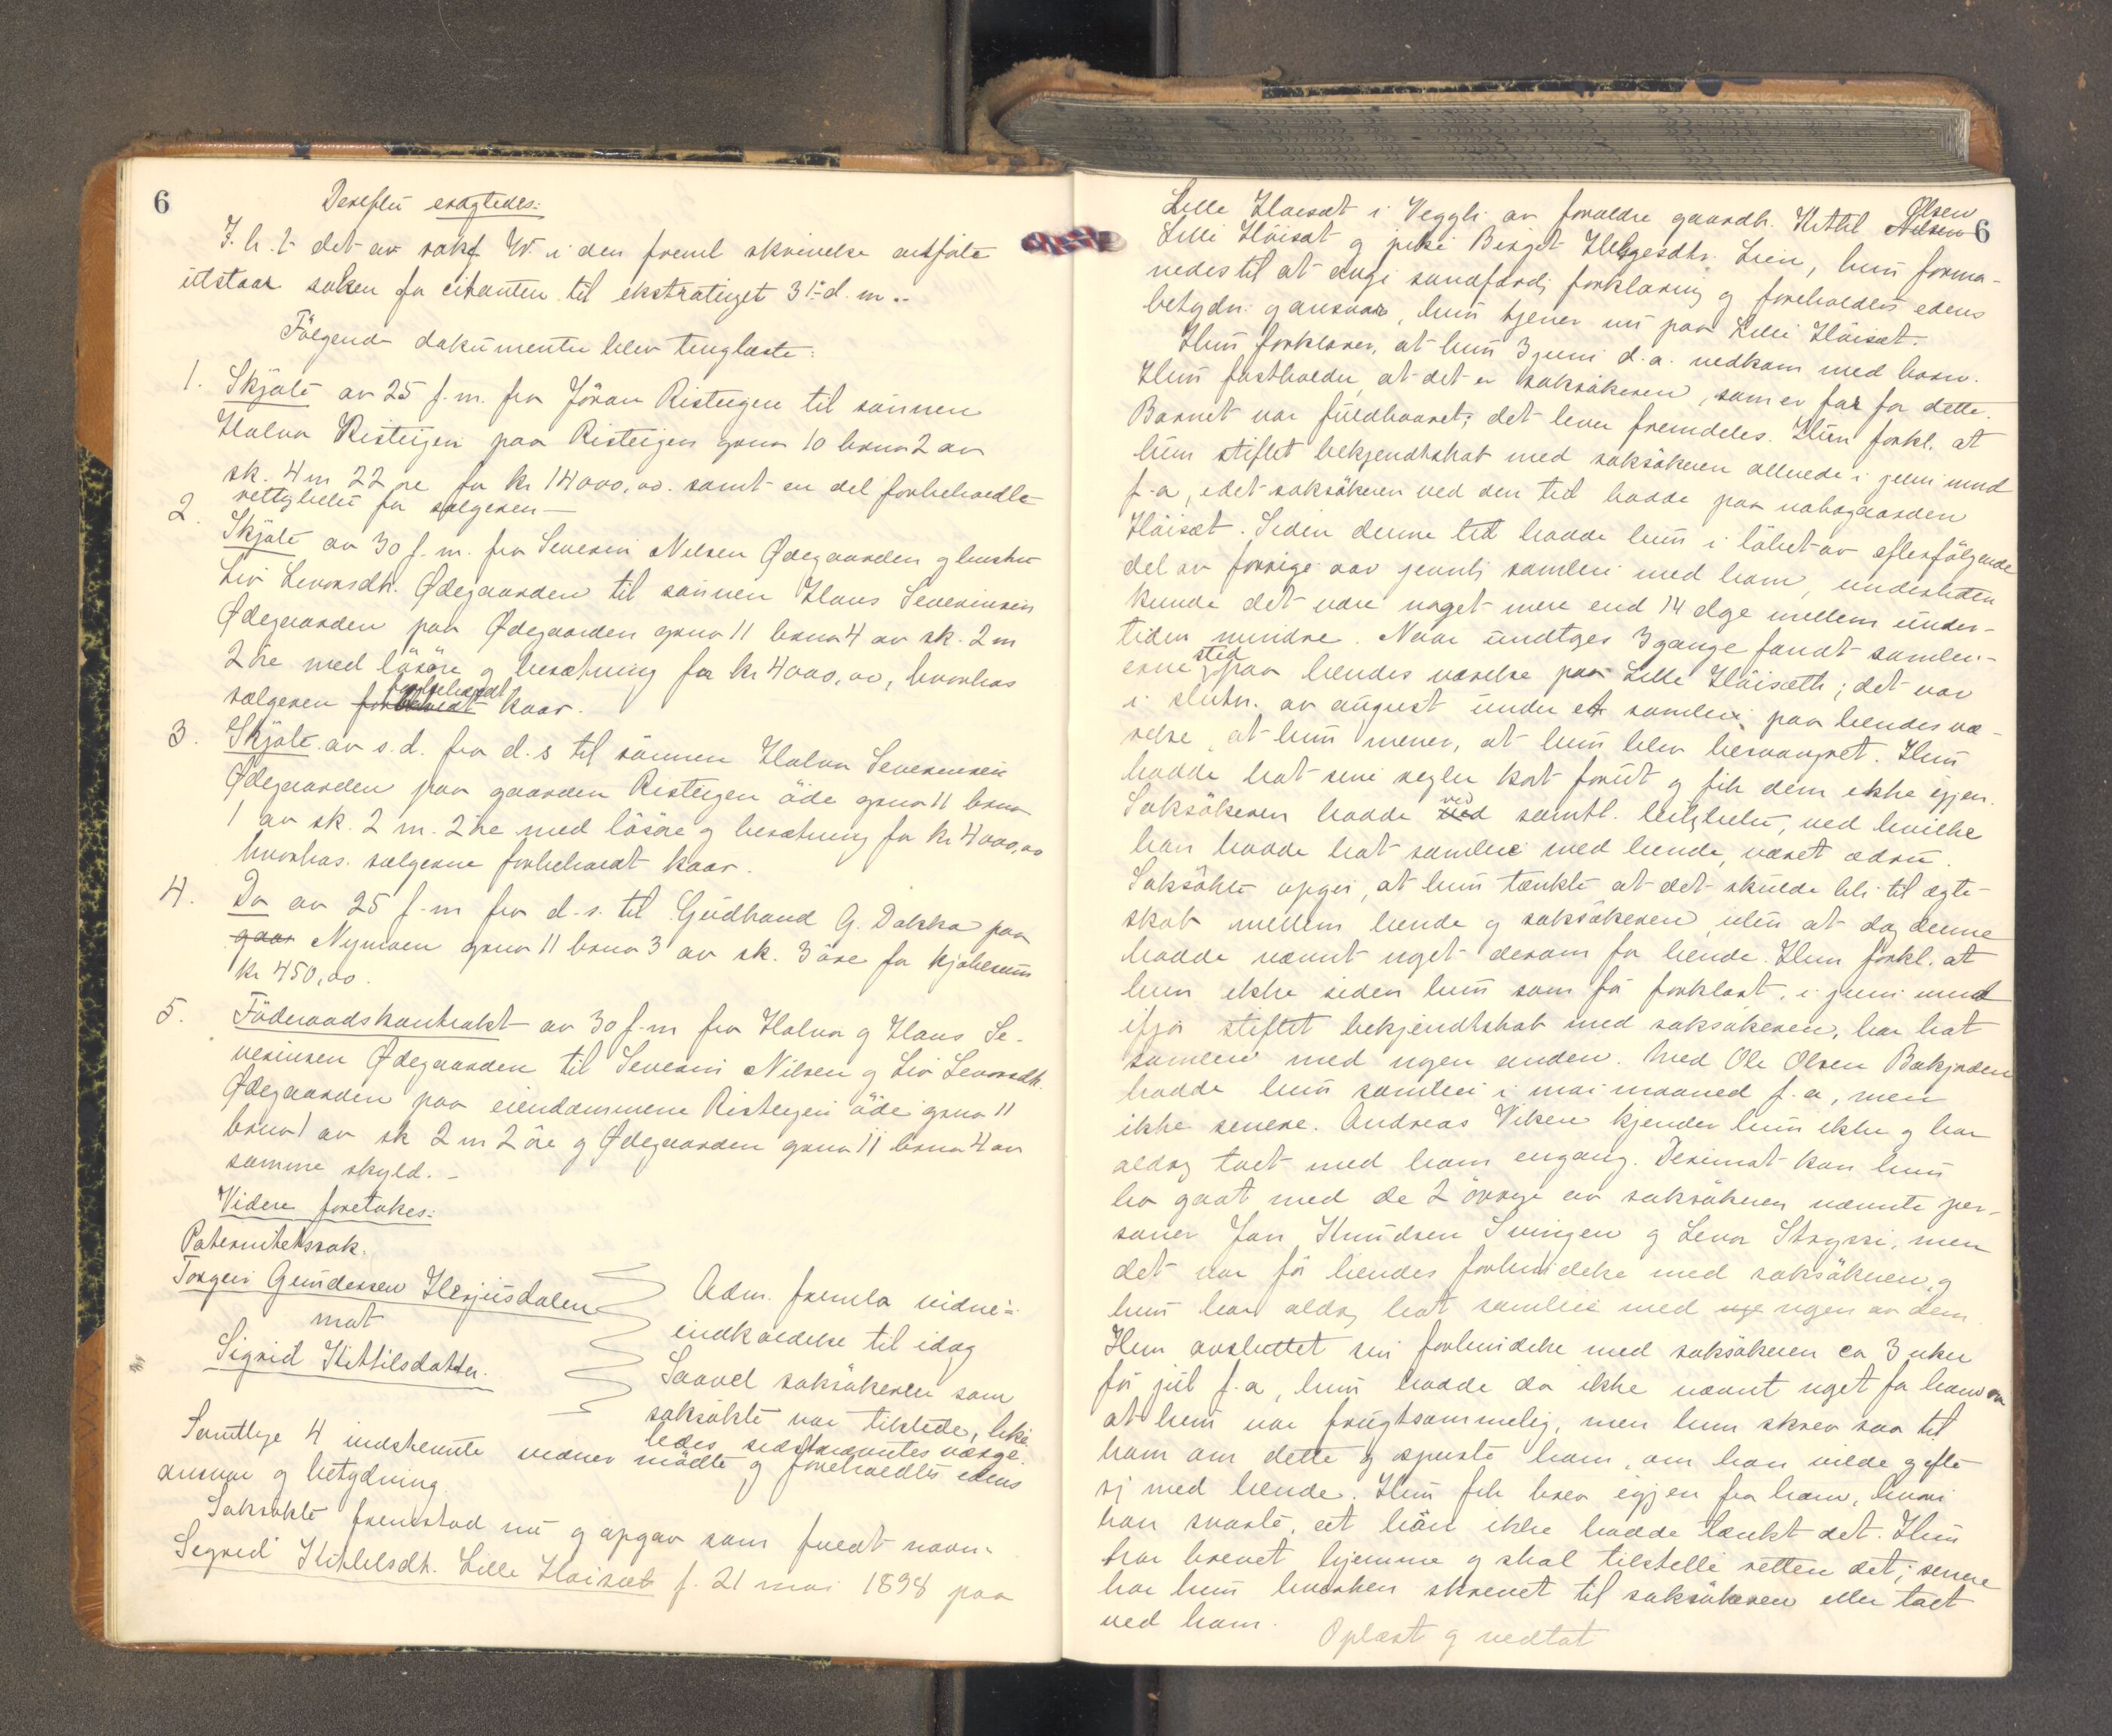 6
Derefter eragtedes:
I. h. t. det av sakf. W. i den freml. skrivelse anførte
utstaar saken for citanten til ekstratinget 31te d. m.-
Følgende dokumenter blev tinglæste:
1. Skjøte av 25 f. m. fra Jöran Risteigen til sönnen
Halvor Risteigen paa Risteigen gsno 10 bsno 2 av
sk. 4 m 22 øre for kr 14000,00. samt en del forbeholdte
rettigheter for sælgeren—
2. Skjøte av 30 f. m. fra Severin Nilsen Ødegaarden g hustru
Liv Levorsdtr. Ødegaarden til sönnen Hans Severinsen
Ødegaarden paa Ødegaarden gsno 11 bsno 4 av sk. 2 m
2 öre med lösöre g besætning for kr 4000,00, hvorhos
sælgeren forbeholdt kaar.
3. Skjøte av s. d. fra d. s til sönnen Halvor Severinsen
Ødegaarden paa gaarden Risteigen öde gsno 11 bsno
1 av sk. 2 m. 2 öre med lösöre g besætning for kr 4000,00
hvorhos sælgerne forbeholdt kaar.
4. Do av 25 f. m fra d. s. til Gudbrand G. Dokka paa
gaar Nymoen gsno 11 bsno 3 av sk. 3 öre for kjöbesum
kr 450,00.
5. Föderaadskontrakt av 30 f. m fra Halvor g Hans Se-
verinsen Ødegaarden til Severin Nilsen g Liv Levorsdtr.
Ødegaarden paa eiendommene Risteigen öde gsno 11
bsno 1 av sk 2 m 2 öre g Ødegaarden gsno 11 bsno 4 av
samme skyld. -
Videre foretokes:
Paternitetssak.
Torgeir Gundersen Herjusdalen
mot
Sigrid Kittilsdatter.
Adm. fremla vidne=
indkaldelse til idag
Saavel saksökeren som
saksökte var tilstede, like
ledes sidstnævntes værge.
Samtlige 4 indstevnte vidner mödte g foreholdtes edens
ansvar og betydning.
Saksökte fremstod nu g opgav som fuldt navn:
Sigrid Kittilsdtr. Lille Höisæt f. 21 mai 1898 paa
6
Lille Höisæt i Veggli av forældre gaardbr. Kittil Nilsen Olsen
Lille Höisæt g pike Birgit Helgesdtr. Lien, hun forma-
nedes til at avgi sandfærdig forklaring g foreholdtes edens
betydn. g ansvar, hun tjener nu paa Lille Höisæt.
Hun forklarer, at hun 3 juni d. a. nedkom med barn.
Hun fastholder at det er saksökeren, som er far for dette.
Barnet var fuldbaaret; det lever fremdeles. Hun forkl. at
hun stiftet bekjendtskab med saksökeren allerede i juni mnd
f. a, idet saksökeren ved den tid hadde paa nabogaarden
Höisæt. Siden denne tid hadde hun i löbet av efterfölgende
del av forrige aar jevnli samleie med ham, undertiden
kunde det være noget mere end 14 dge mellem under-
tiden mindre. Naar undtges 3 gange fandt samlei-
erne sted paa hendes værelse paa Lille Höisæth; det var
i slutn. av august under et samleie paa hendes væ-
relse, at hun mener, at hun blev besvangret. Hun
hadde hat sine regler kort forut g fik dem ikke igjen.
Saksökeren hadde ved ved samtl. leiligheter, ved hvilke
han hadde hat samleie med hende, været ædru.
Saksökte opgir, at hun tænkte at det skulde bli til ægte-
skab mellem hende g saksökeren uten at dog denne
hadde nævnt noget derom for hende. Hun forkl. at
hun ikke siden hun som för forklart, i juni mnd
ifjor stiftet bekjendtskab med saksökeren, har hat
samleie med nogen anden. Med Ole Olsen Bakjorden
hadde hun samleie i mai maaned f. a, men
ikke senere. Andreas Viken kjender hun ikke g har
aldrig talt med ham engang. Derimot kan hun
ha gaat med de 2 övrige av saksökeren nævnte per-
soner Jon Knudsen Svingen g Levor men
det var för hendes forbindelse med saksökeren, g
hun har aldrig hat samleie med nge nogen av dem
Hun avsluttet sin forbindelse med saksökeren ca 3 uker
för jul f. a, hun hadde da ikke nævnt noget for ham om
at hun var frugtsommelig, men hun skrev saa til
ham om dette g spurte ham, om han vilde gifte
sig med hende. Hun fik brev igjen fra ham, hvori
han svarte, at han ikke hadde tænkt det. Hun
har brevet hjemme g skal tilstelle retten det; senere
har hun hverken skrevet til saksökeren eller talt
ved ham.
Oplæst g vedtat